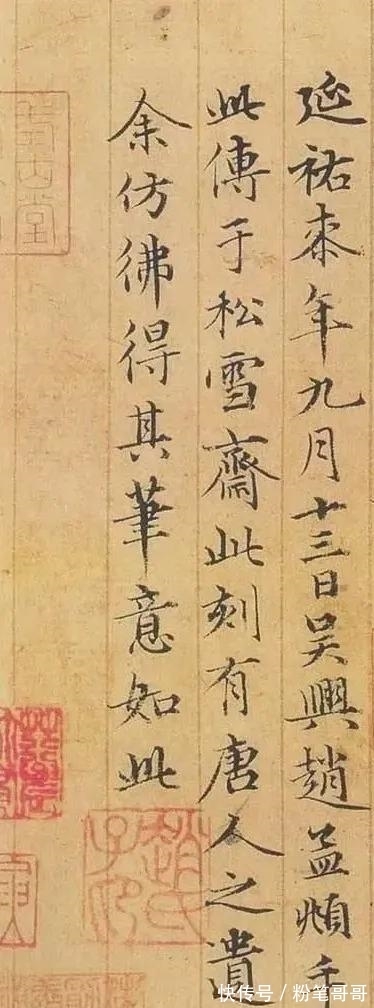 延祐桼年九月十三日吳興趙孟頫手
此傳于松雪齋此刻有唐人之遺
余仿彿得其筆意如此
趙氏子昂
快传号/粉笔哥哥